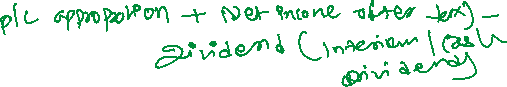 plc appropation + Net income after tax) -
dividend (interim / cash
dividend)